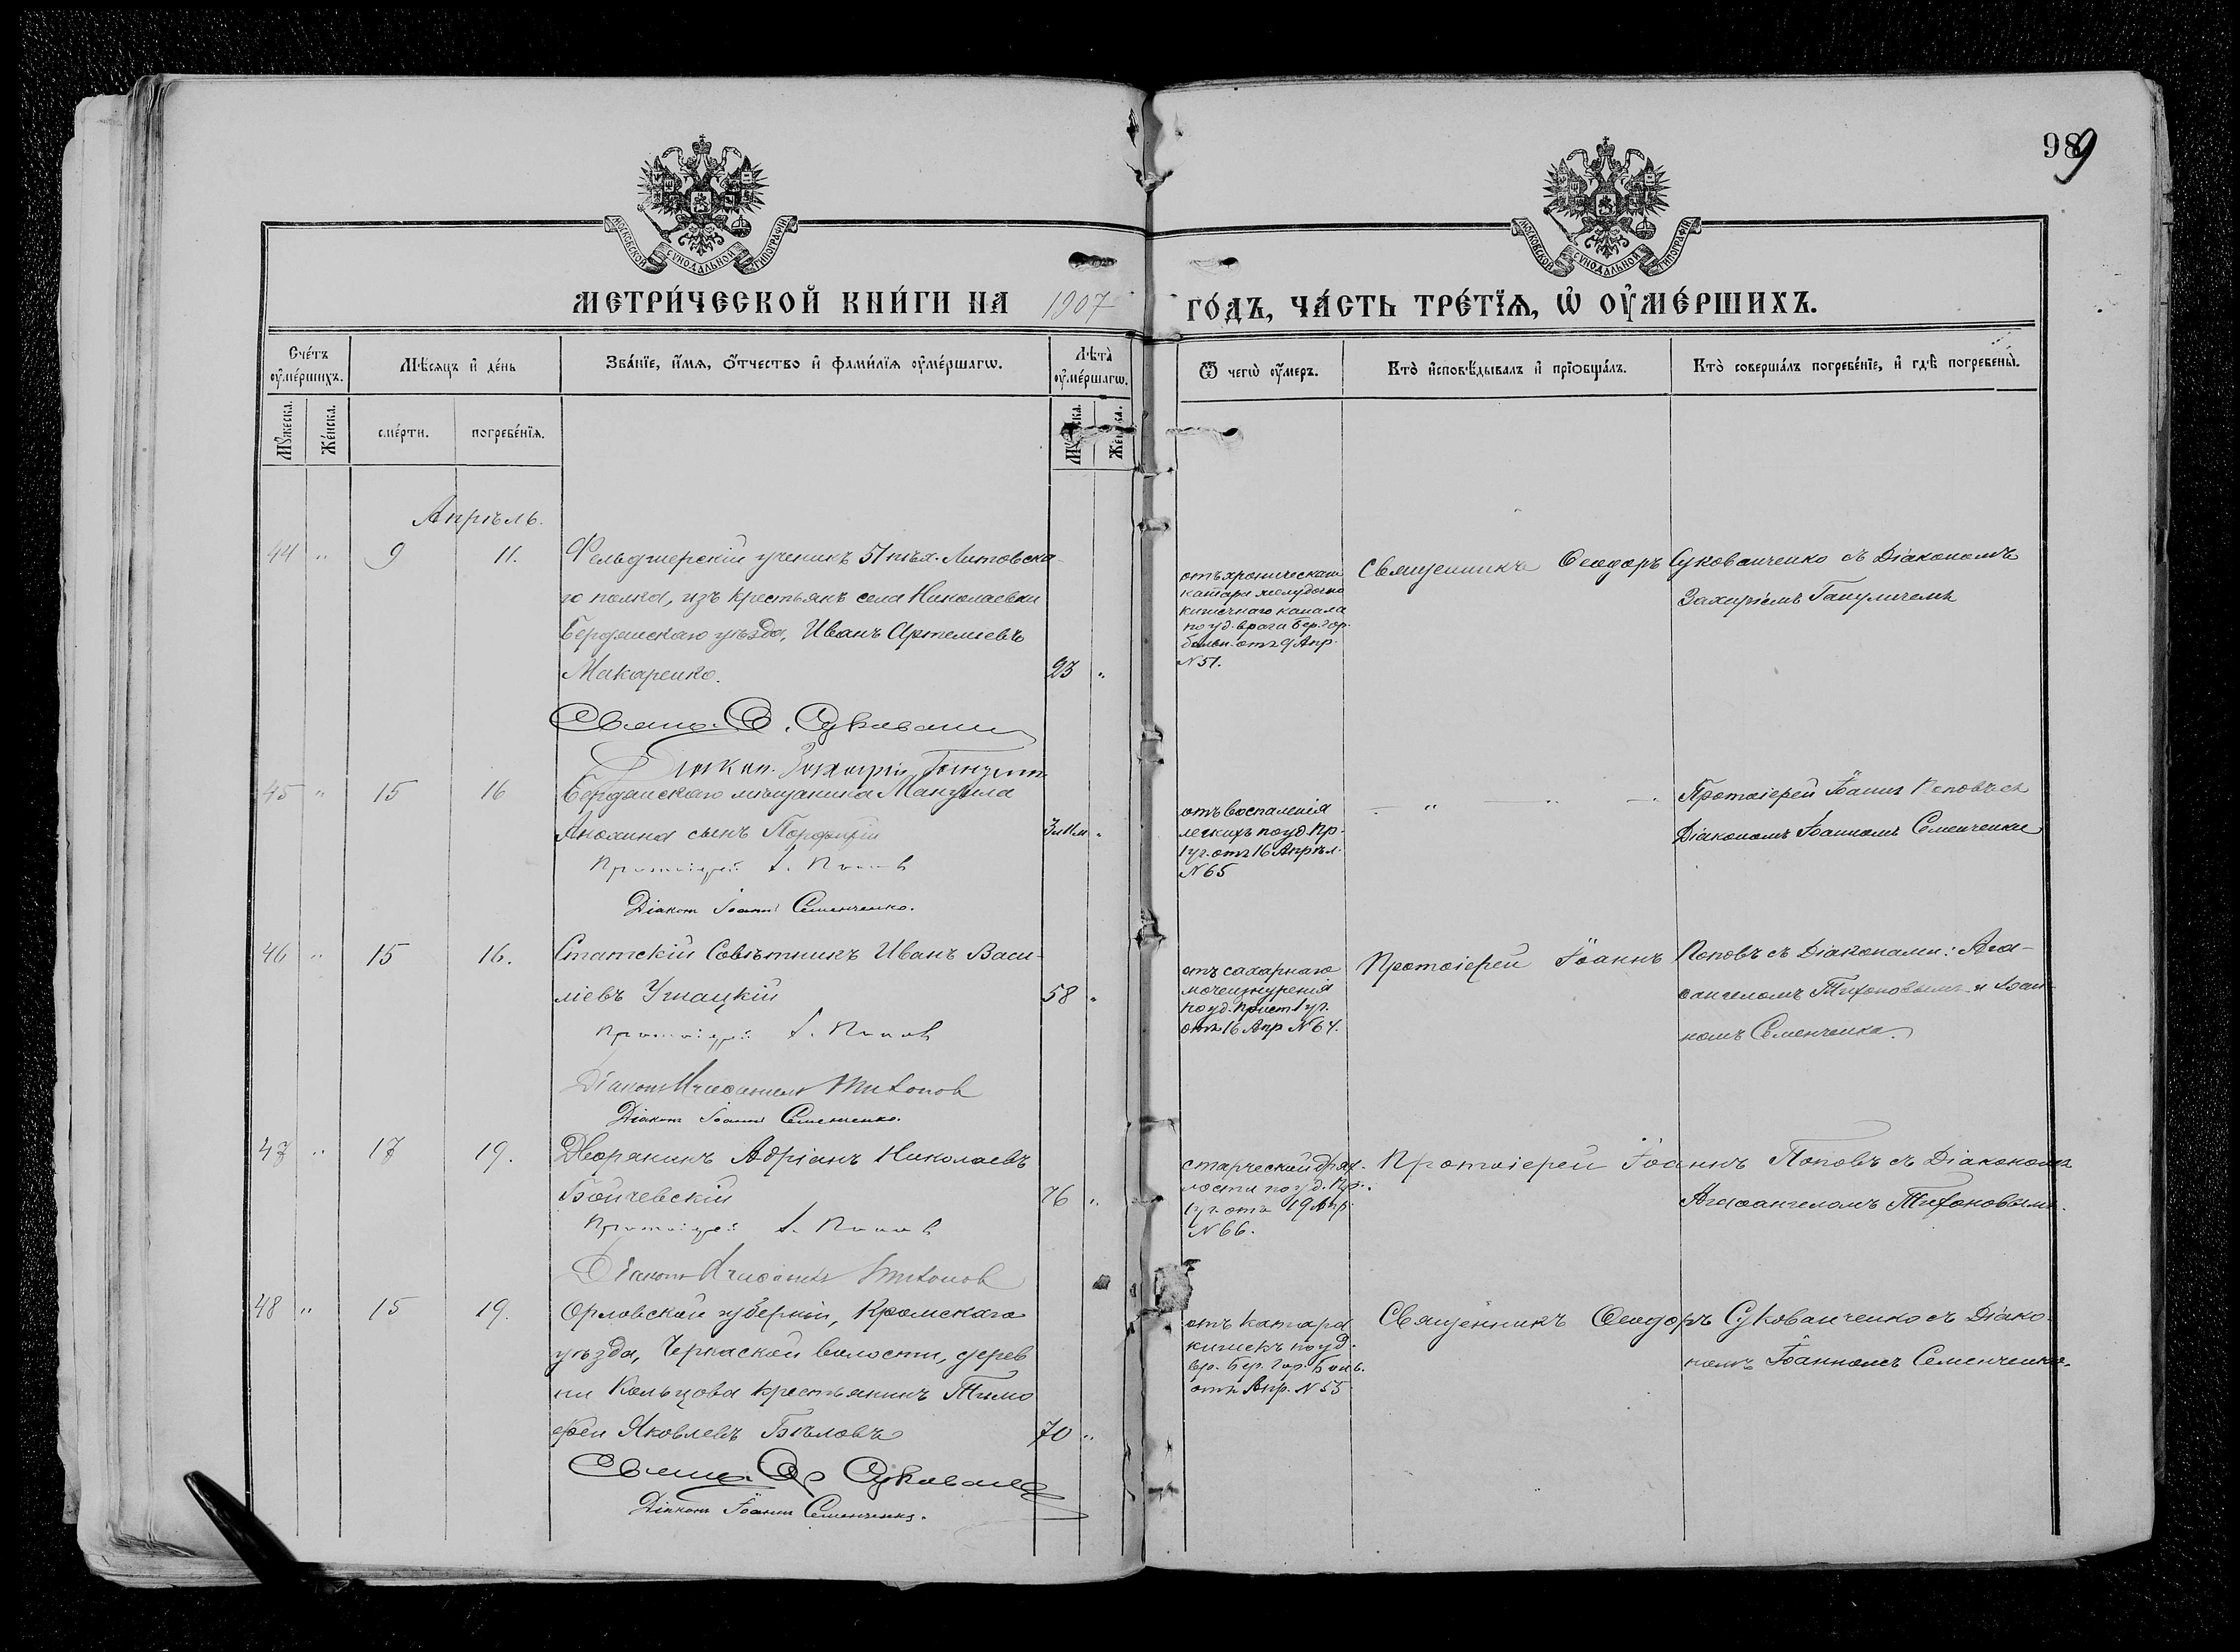 989
МОСКОВСКОЙ СѴНОДАЛЬНОЙ ТИПОГРАФІИ
МОСКОВСКОЙ СѴНОДАЛЬНОЙ ТИПОГРАФІИ
МЕТРИ́ЧЕСКОЙ КНИ́ГИ НА 1907 ГО́ДЪ, ЧА́СТЬ ТРЕ́ТЇѦ, Ѡ҆ ОУ҆МЕ́РШИХЪ.
Сче́тъ оу҆ме́ршихъ.
Мѣ́сѧцъ и҆ де́нь
Зва́нїе, и҆́мѧ, ѻ҆́тчество и҆ фами́лїѧ оу҆ме́ршагѡ.
Лѣ́та оу҆ме́ршагѡ.
Ѿ чегѡ̀ оу҆́меръ.
Кто̀ и҆сповѣ́дывалъ и҆ прїѡбща́лъ.
Кто̀ соверша́лъ погребе́нїе, и҆ гдѣ̀ погребены̀.
Мꙋ́жеска.
Же́нска.
сме́рти.
погребе́нїѧ.
Мꙋ́жеска.
Же́нска.
Апрѣль.
44 " 9 11. Фельдшерскій ученикъ 51 пѣх. Литовска-
го полка, изъ крестьянъ села Николаевки
Бердянскаго уѣзда, Иванъ Артеміевъ
Макаренко. 23 "
отъ хроническаго
катара желудочно
кишечнаго канала
по уд. врача Бер. гор.
больн. отъ 9 Апр.
№ 51.
Священникъ Ѳеодоръ Сукованченко съ Діакономъ
Захаріемъ
Свящ. Ѳ. Сукован
Діакон. Захарій
45 " 15 16 Бердянскаго мѣщанина Мануила
Анохина сынъ Порфирій 3 "
Протоіерей І. Попов
Діакон Іоанн Семенченко.
отъ воспаленія
легкихъ по уд. Пр.
1 уч. отъ 16 Апрѣл.
№ 65
— " — " —
Протоіерей Іоаннъ Поповъ съ
Діакономъ Іоанномъ Семенченко
46 " 15 16. Статскій Совѣтникъ Иванъ Васи-
ліевъ 58 "
Протоіерей І. Попов
Діаконъ Агаѳангел Тихонов
Діакон Іоанн Семенченко.
отъ сахарнаго
мочеизнуренія
по уд. Прист. 1 уч.
отъ 16 Апр № 64.
Протоіерей Іоаннъ Поповъ съ Діаконами: Ага-
ѳангеломъ Тихоновымъ и Іоан-
номъ Семенченко.
47 " 17 19. Дворянинъ Адріанъ Николаевъ
Бойчевскій 76 "
Протоіерей І. Попов
Діаконъ Агаѳангел Тихонов
старческой дрях-
лости по уд. Пр.
1 уч. отъ 19 Апр.
№ 66.
Протоіерей Іоаннъ Поповъ съ Діакономъ
Агаѳангеломъ Тихоновымъ.
48 " 15 19. Орловской губерніи, Кромскаго
уѣзда, Черкаской волости, дерев
ни Кольцова крестьянинъ Тимо
фей Яковлевъ Бѣловъ 70 "
Свящ. Ѳ. Сукован
Діакон Іоанн Семенченко.
отъ катара
кишекъ по уд.
вр. Бер. Гор. Больн.
отъ Апр. № 55
Священникъ Ѳеодоръ Сукованченко съ Діако-
номъ Іоанномъ Семенченко.